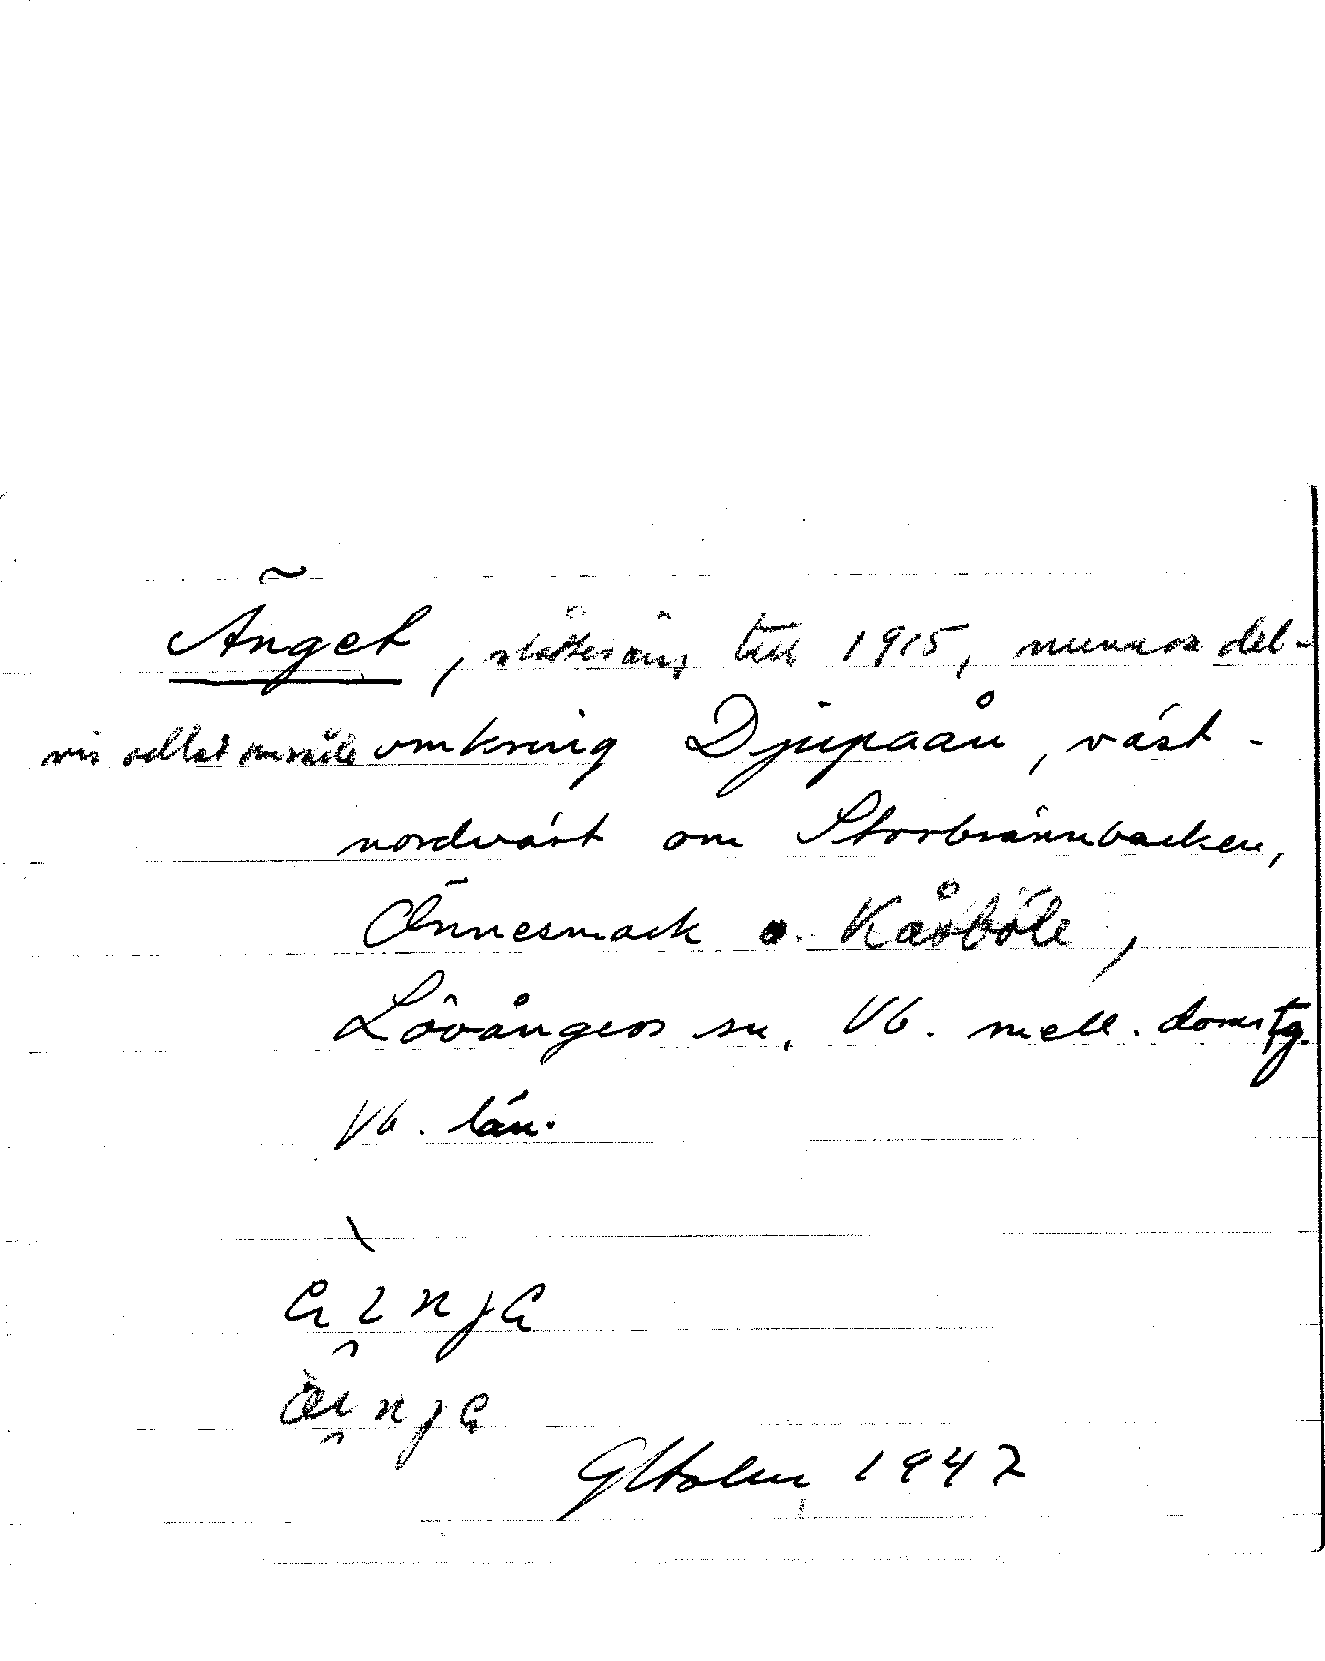 Änget, slåtteräng till 1915, numera del-
vis odlat område omkring Djupaån, väst-
nordväst om Storbrännbacken,
Önnesmark o. Kåsböle,
Lövångers sn. Vb. mell. domstg.
Vb. län.
GHolm 1947